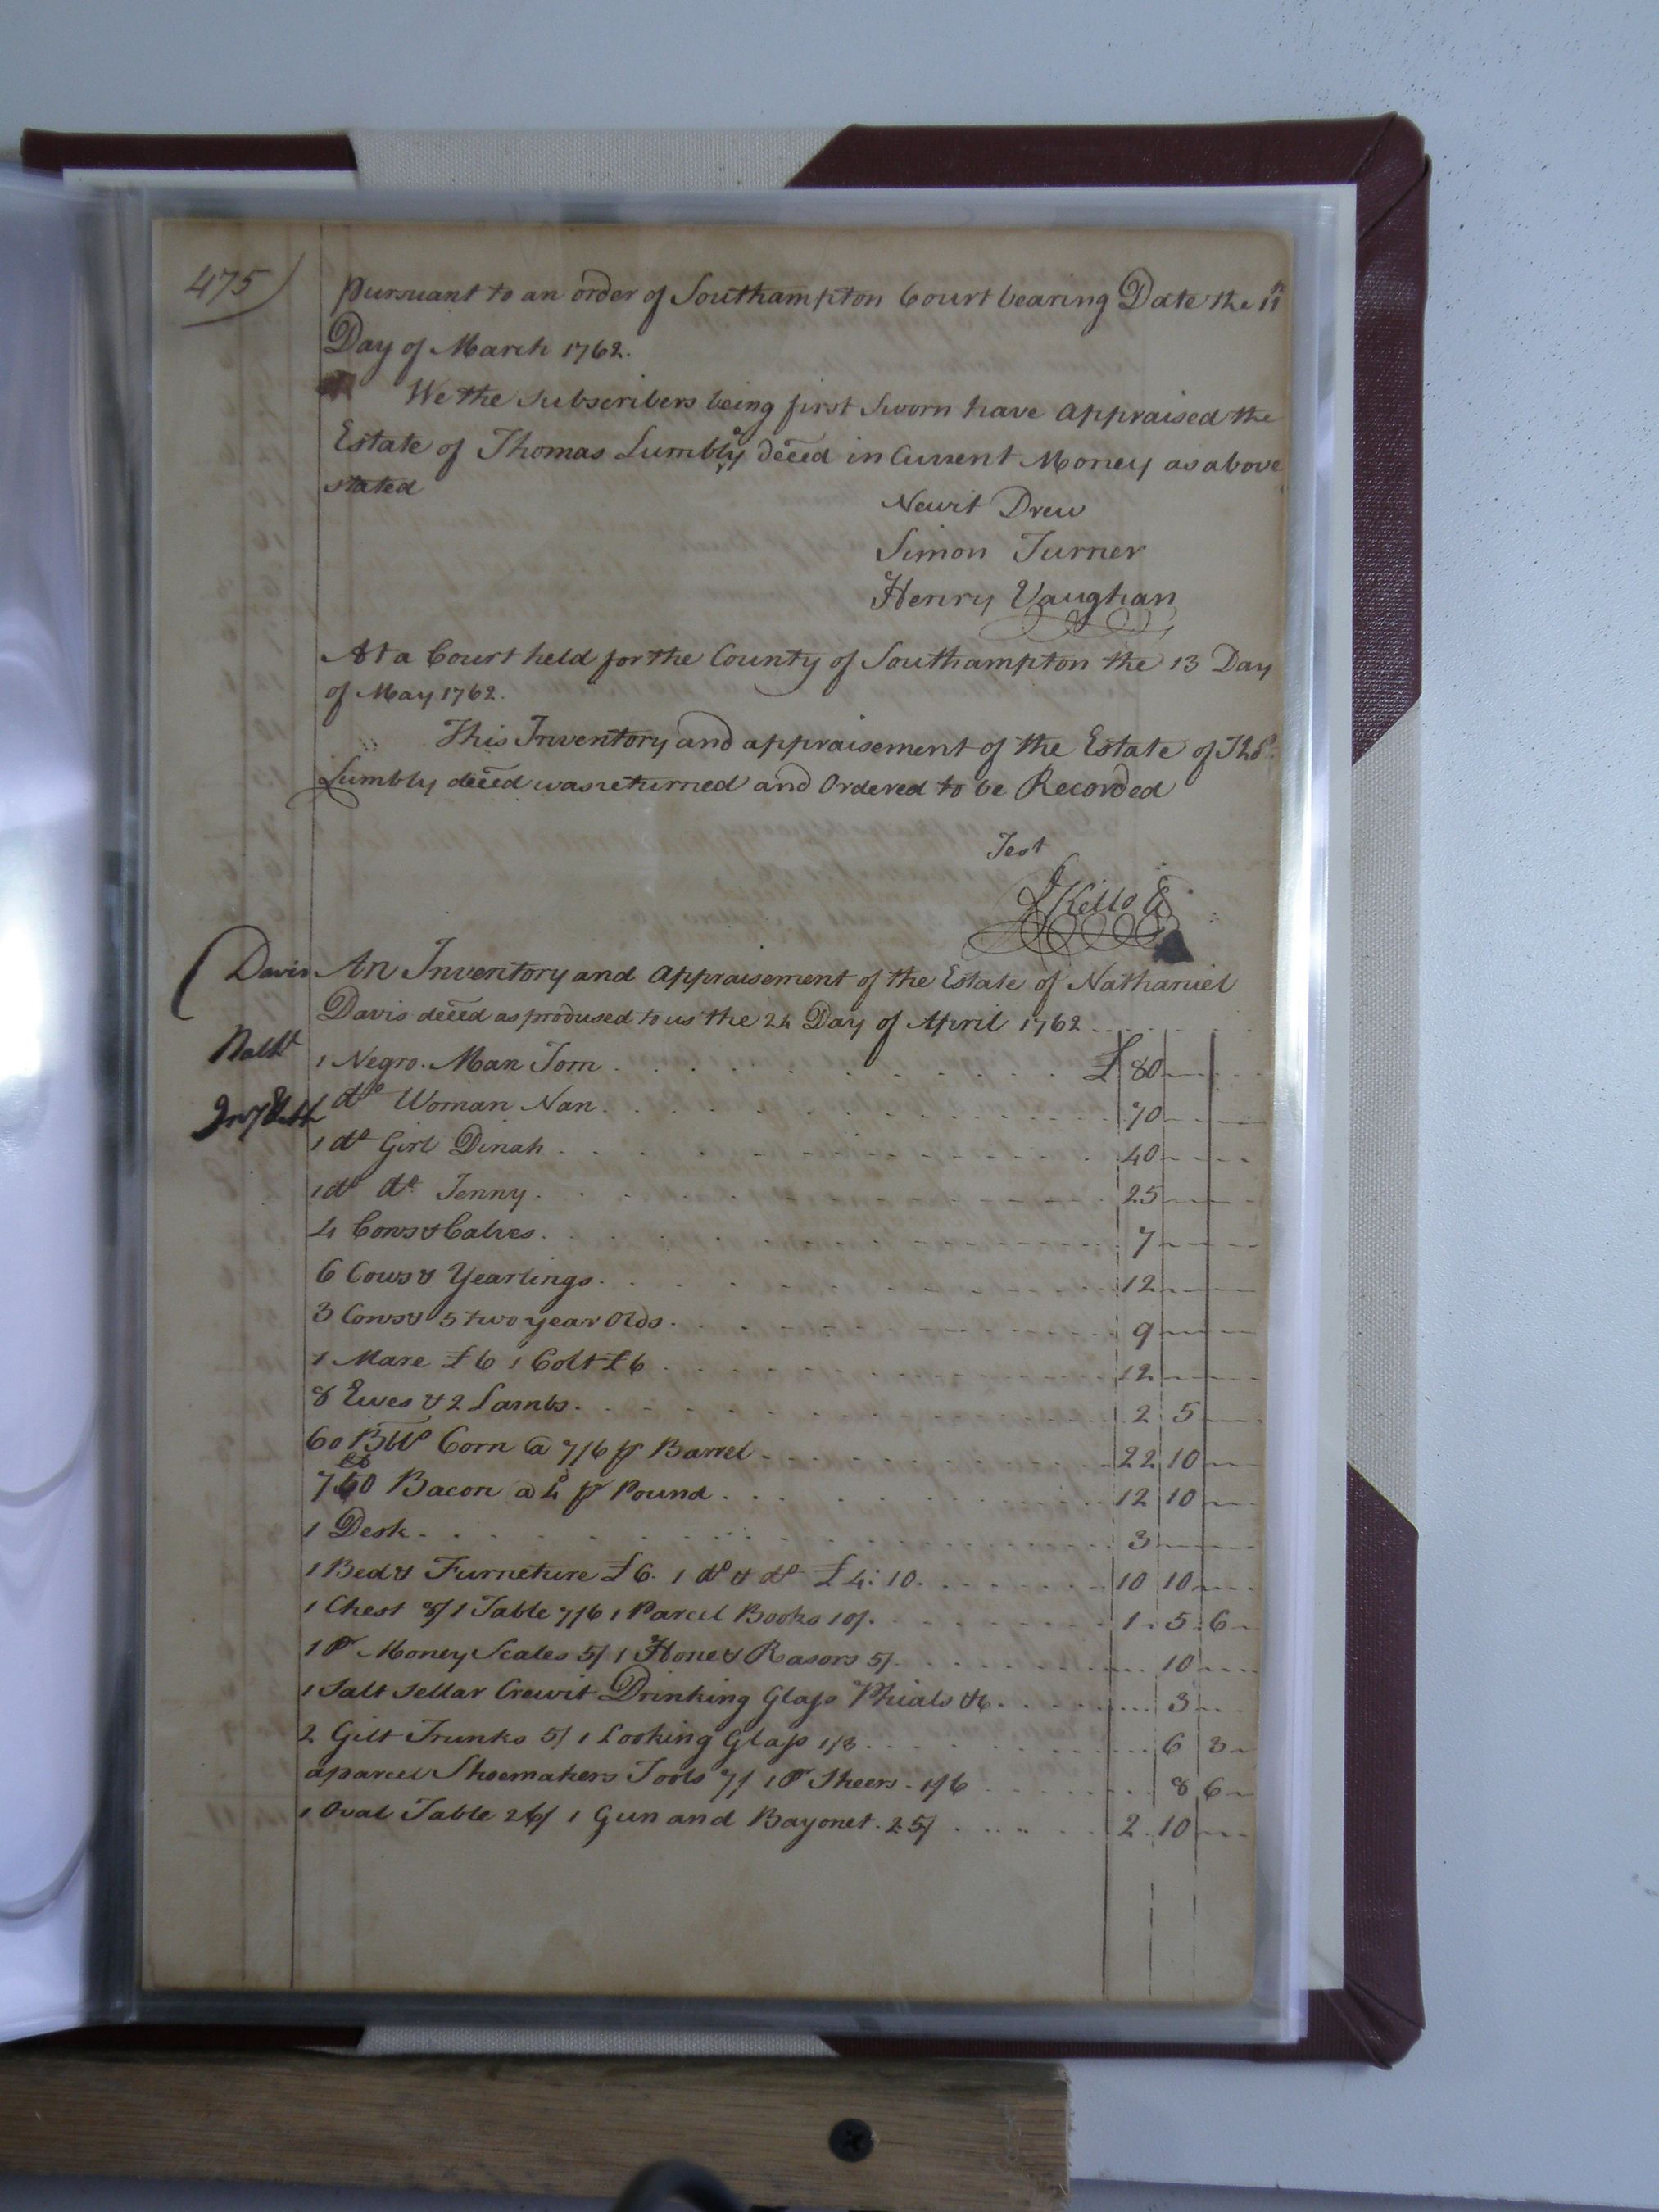 475
Pursuant to an order of Southampton Court bearing Date the 11th
Day of March 1762.
We the Subscribers being first Sworn have appraised the
Estate of Thomas Lumbly deced in Current Money as above
stated
Newit Drew
Simon Turner
Henry Vaughan
At a Court held for the County of Southampton the 13 Day
of May 1762.
This Inventory and appraisement of the Estate of Thos.
Lumbly deced was returned and Ordered to be Recorded
Test
Kello
Davis An Inventory and Appraisement of the Estate of Nathaniel
Davis deced as prodused to us the 24 Day of April 1762
Nathl
1 Negro Man Tom £ 80
1 do Woman Nan 70
1 do Girl Dinah 40
1 do do Jenny 25
4 Cows & Calves 7
6 Cows & Yearlings 12
3 Cows & 5 two year Olds 9
1 Mare £6 1 Colt £6 12
8 Ewes & 2 Lambs 2 5
60 Blls Corn @ 7/6 pr Barrel 22 10
750 lb Bacon a 4d pr Pound 12 10
1 Desk 3
1 Bed & Furneture £6. 1 do & do £4:10 10 10
1 Chest 8/ 1 Table 7/6 1 Parcel Books 10/. 1 5 6
1 Pr Money Scales 5/ 1 Hone & Rasors 5/ 10
1 Salt Sellar Crewit Drinking Glass Phials &c 3
2 Gilt Trunks 5/ 1 Looking Glass 1/3 6 3
a parcel Shoemakers Tools 7/ 1 Pr Sheers 1/6 8 6
1 Oval Table 26/ 1 Gun and Bayonet 25/ 2 10